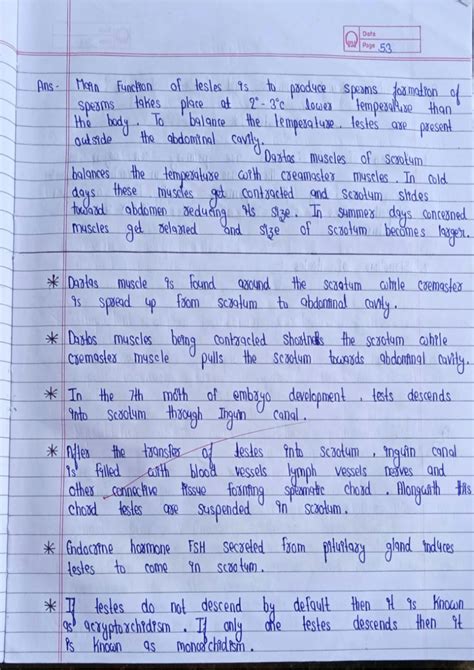 Date
Page 53
Ans- Main Function of testes is to produce sperms formation of
sperms takes place at 2°-3°c lower temperature than
the body. To balance the temperature. testes are present
outside the abdominal cavity.
Dartos muscles of scrotum
balances the temperature with creamaster muscles. In cold
days these muscles get contracted and scrotum slides
toward abdomen reducing its size. In summer days concerned
muscles get relaxed and size of scrotum becomes larger.
* Dartas muscle is found around the scrotum while cremaster
is spread up from scrotum to abdominal cavity.
* Dartos muscles being contracted shortness the scrotum while
cremaster muscle pulls the scrotum towards abdominal cavity.
* In the 7th moth of embryo development, tests descends
into scrotum through Inguin canal.
* After the transfer of testes into scrotum, inguin canal
is filled with blood vessels lymph vessels nerves and
other connective tissue forming spermatic chord. Alongwith this
chord testes are suspended in scrotum.
* Endocrine hormone FSH secreted from pituitary gland induces
testes to come in scrotum.
* If testes do not descend by default then it is known
as acryptorchidism. If only one testes descends then it
is known as monorchidism.